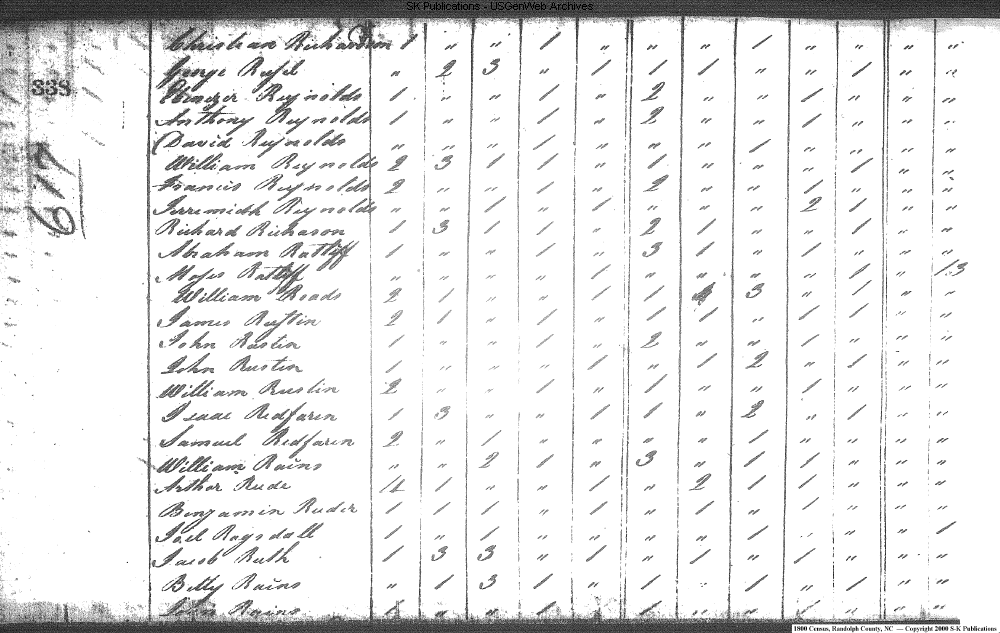 SK Publications - USGenWeb Archives
338
617
Christian Richardson 1 " " 1 " " " 1 " " " "
George Rusel " 2 3 " 1 1 1 " " 1 " "
Ebenezer Reynolds 1 " " 1 " 2 " " 1 " " "
Anthony Reynolds 1 " " 1 " 2 " " 1 " " "
David Reynolds " " " 1 " " " 1 " " " "
William Reynolds 2 3 1 1 " 1 " " " 1 " "
Francis Reynolds 2 " " 1 " 2 " " 1 " " "
Jerremiah Reynolds " " 1 " 1 " " " 2 1 " "
Richard Richason 1 3 1 1 " 2 1 " " 1 " "
Abraham Ratliff 1 " " 1 " 3 1 " 1 " " "
Moses Ratliff " " " " 1 " " " " 1 " 13
William Roads 2 1 " " 1 1 3 " 1 " "
James Rustin 2 1 " 1 " 1 1 " 1 1 " "
John Rustin 1 " " 1 " 2 " " 1 " " "
John Rustin 1 " " " 1 " 1 2 " 1 " "
William Rustin 2 " " 1 " 1 " " 1 " " "
Isaac Redfaren 1 3 " " 1 1 " 2 " 1 " "
Samuel Redfaren 2 " 1 " " " " 1 " " " "
William Rains " " 2 1 " 3 " 1 1 " " "
Arthor Rude 1 " " 1 " 2 1 " 1 " "
Benjamin Ruder 1 1 1 " 1 " 1 " 1 " "
Joel Ragsdall 1 " 1 " " " " 1 " " " 1
Jacob Ruth 1 3 3 " 1 " 1 " 1 " " "
Betty Rains " 1 3 1 " 1 " 1 " 1 " "
John Rains " " 1 " 1 " " 1 " " "
1800 Census, Randolph County, NC — Copyright 2000 S-K Publications